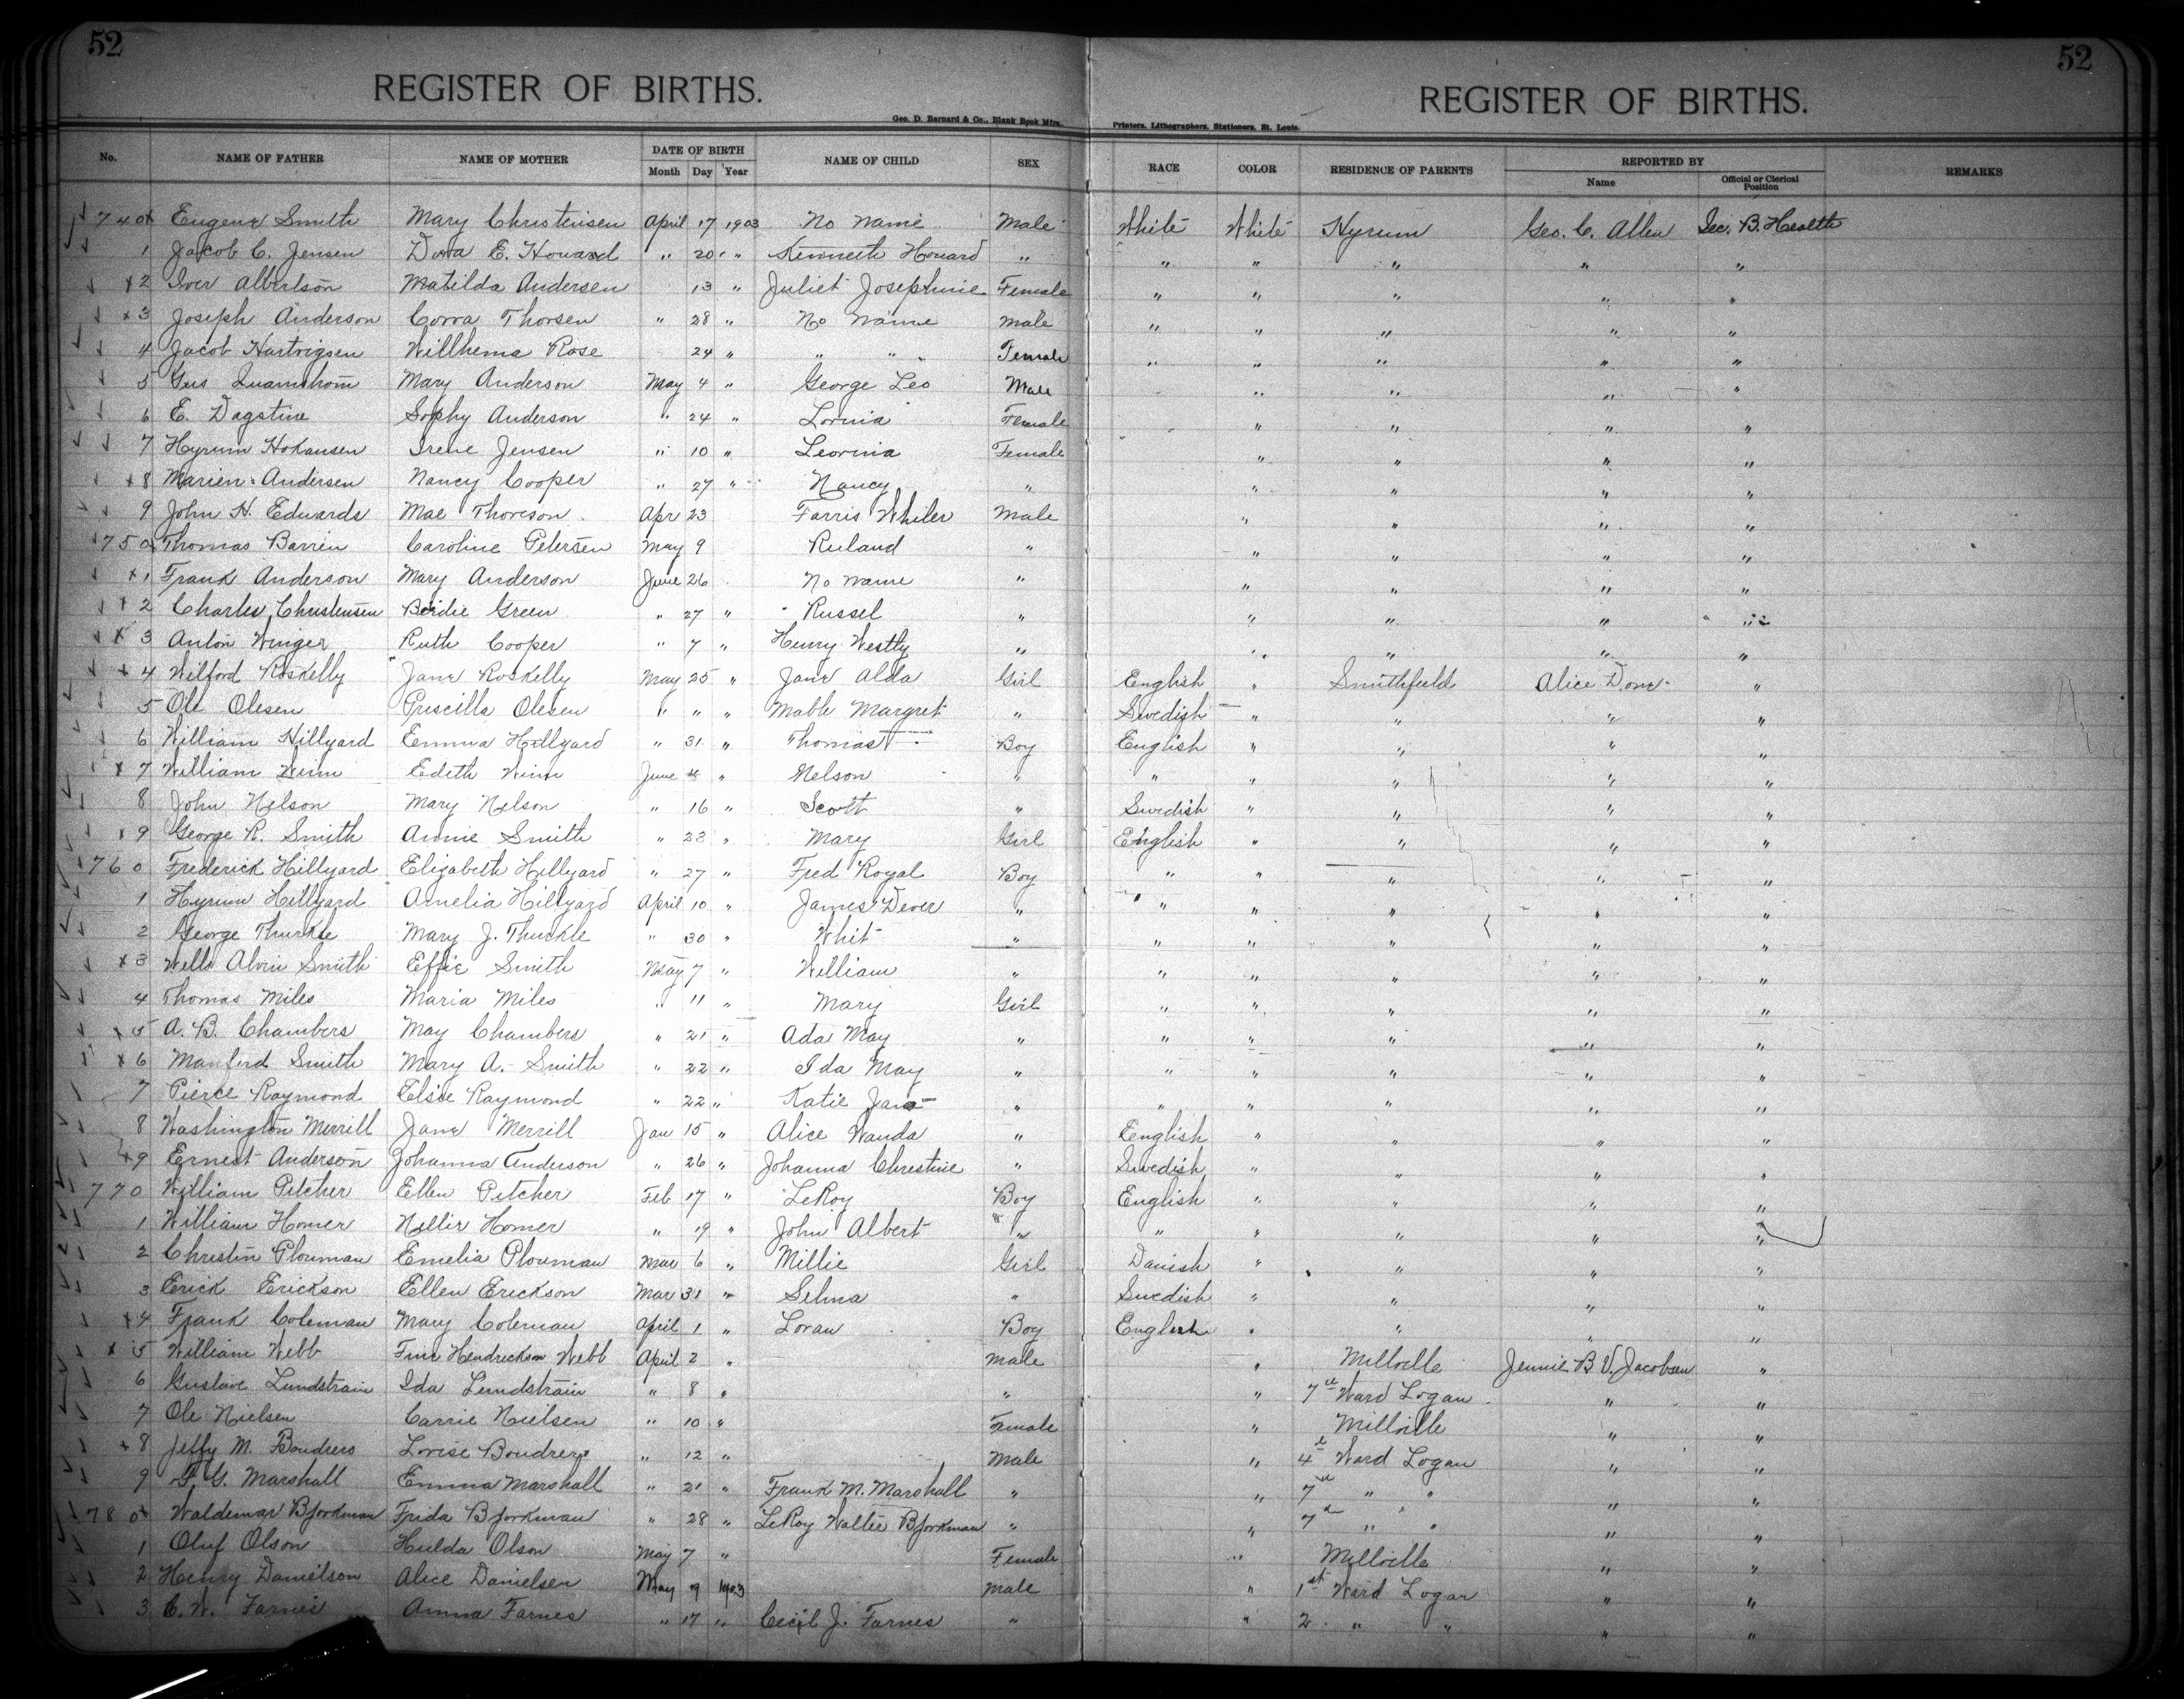 52
52
REGISTER OF BIRTHS.
REGISTER OF BIRTHS.
Geo. D. Barnard & Co., Blank Book Mfrs.
Printers, Lithographers, Stationers, St. Louis.
No. NAME OF FATHER NAME OF MOTHER DATE OF BIRTH NAME OF CHILD SEX RACE COLOR RESIDENCE OF PARENTS REPORTED BY REMARKS
Month Day Year Name Official or Clerical Position
740 x Eugene Smith Mary Christensen April 17 1903 No name Male White White Hyrum Geo. C. Allen Sec. B. Health
1 Jacob C. Jensen Dora E. Howard " 20 " Kenneth Howard " " " " " "
x2 Iver Albertson Matilda Andersen 13 " Juliet Josephine Female " " " " "
x3 Joseph Anderson Corra Thorsen " 28 " No name male " " " " "
4 Jacob Hartvigsen Willhema Rose 24 " " " " Female " " " " "
5 Gus Mary Anderson May 4 " George Leo Male " " " "
6 E. Dagstine Sophy Anderson " 24 " Lornia Female " " " "
7 Hyrum Hokansen Irene Jensen " 10 " Leorina Female " " " "
x8 Marien Andersen Nancy Cooper " 27 " Nancy " " " " "
9 John H. Edwards Mae Thoreson Apr 23 Farris Whiler Male " " " "
750 x Thomas Barren Caroline Petersen May 9 Ruland " " " " "
x1 Frank Anderson Mary Anderson June 26 No name " " " " "
x2 Charles Christensen Birdie Green " 27 " Russel " " " " "
x3 Anton Winger Ruth Cooper " 7 " Henry Westly " " " " "
x4 Wilford Roskelly Jane Roskelly May 25 " Jane Alda Girl English " Smithfield Alice Done "
5 Ole Olesen Priscilla Olesen " " " Mable Margret " Swedish " " " "
6 William Hillyard Emma Hillyard " 31 " Thomas T Boy English " " " "
x7 William Winn Edith Winn June 4 " Nelson " " " " " "
8 John Nelson Mary Nelson " 16 " Scott " Swedish " " " "
x9 George R. Smith Annie Smith " 23 " Mary Girl English " " " "
760 Frederick Hillyard Elizabeth Hillyard " 27 " Fred Royal Boy " " " " "
1 Hyrum Hillyard Amelia Hillyard April 10 " James Dever " " " " " "
2 George Thurkle Mary J. Thurkle " 30 " Whit " " " " " "
x3 Wells Alvin Smith Effie Smith May 7 " William " " " " " "
4 Thomas Miles Maria Miles " 11 " Mary Girl " " " " "
x5 A. B. Chambers May Chambers " 21 " Ada May " " " " " "
x6 Manford Smith Mary A. Smith " 22 " Ida May " " " " " "
7 Pierce Raymond Elsie Raymond " 22 " Katie Jane " " " " " "
8 Washington Merrill Jane Merrill Jan 15 " Alice Wanda " English " " " "
x9 Ernest Anderson Johanna Anderson " 26 " Johanna Chrestine " Swedish " " " "
770 William Pitcher Ellen Pitcher Feb 17 " LeRoy Boy English " " " "
1 William Homer Nellie Homer " 19 " John Albert " " " " " "
2 Christin Plowman Emelia Plowman Mar 6 " Millie Girl Danish " " " "
3 Erick Erickson Ellen Erickson Mar 31 " Selma " Swedish " " " "
x4 Frank Coleman Mary Coleman April 1 " Loran Boy English " " " "
x5 William Webb Fine Hendrickson Webb April 2 " male " Millville Jennie B V. Jacobsen "
6 Gustave Lundstrain Ida Lundstrain " 8 " " " 7th Ward Logan " "
7 Ole Nielsen Carrie Nielsen " 10 " Female " Millville " "
x8 Jeffy M. Boudrero Lovise Boudrero " 12 " Male " 4th Ward Logan " "
9 F. G. Marshall Emma Marshall " 21 " Frank M. Marshall " " 7th " " " "
780 x Waldemar Bjorkman Frida Bjorkman " 28 " LeRoy Walter Bjorkman " " 7th " " " "
1 Oluf Olson Hulda Olson May 7 " Female " Millville " "
2 Henry Danielson Alice Danielsen May 9 1903 male " 1st Ward Logan " "
3 C. W. Farnes Anna Farnes " 17 " Cecil J. Farnes " " 2 " " " "